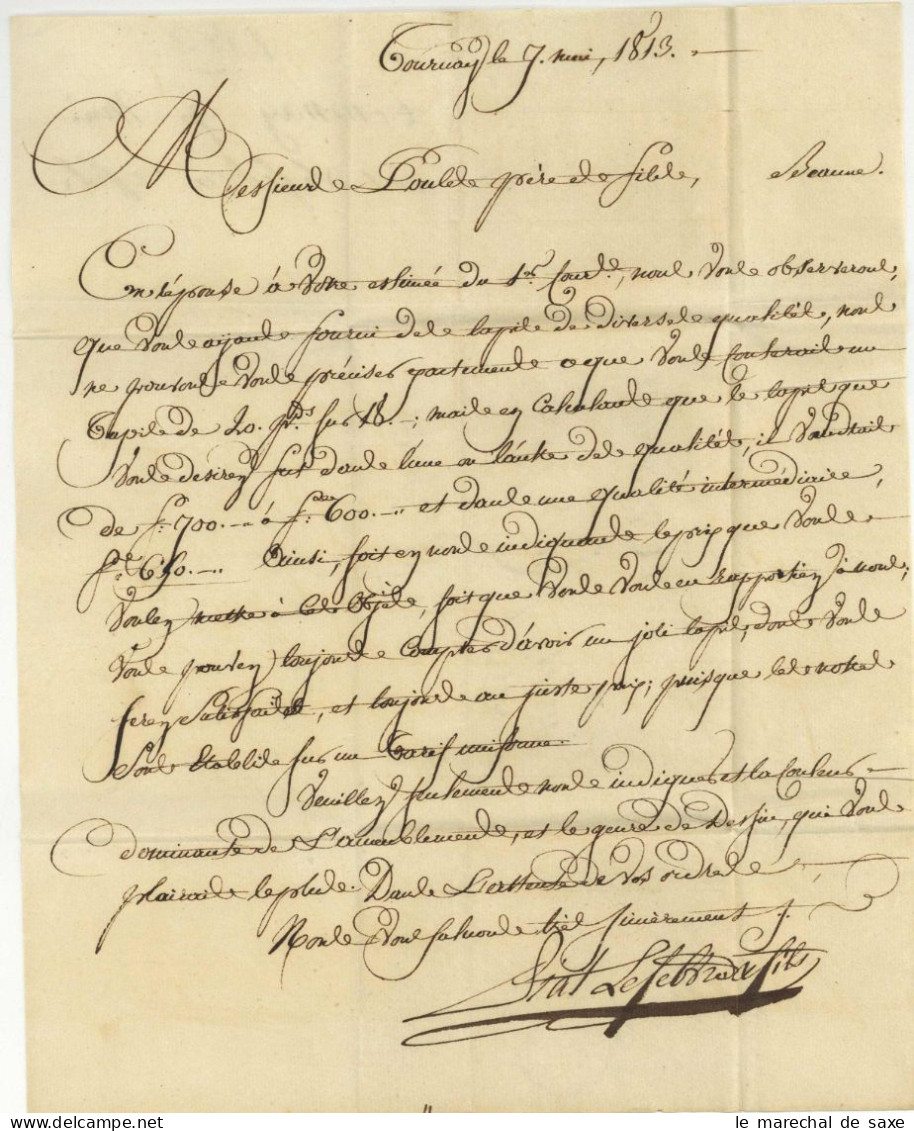 Tournay le 7. mai, 1813.
Messieurs Poulet père et fils, Beaune.
En réponse à Votre estimée du 1er Court., nous Vous observerons,
que Vous ayant fourni des tapis de diverses qualités, nous
ne pouvons Vous préciser exactement ce que Vous Couterait un
Tapis de 20. pds sur 18.; mais en Calculant que le tapis que
Vous desirez fut dans l'une ou l'autre des qualités, il Vaudrait
de f. 700. à f. 600. et dans une qualité intermédiaire,
f. 650. Ainsi, soit en nous indiquant le prix que Vous
Voulez mettre à cet Objet, soit que Vous Vous en rapportiez à nous;
Vous pouvez toujours Compter d'avoir un joli tapis, dont Vous
serez Satisfaits, et toujours au juste prix; puisque les notres
Sont établis sur un Tarif uniforme.
Veuillez seulement nous indiquer et la Couleur
dominante de L'ameublement, et le genre de Dessin, qui Vous
plairait le plus. Dans L'attente de vos ordres
Nous Vous saluons très sincèrement
Piat Lefebvre & fils
le marechal de saxe